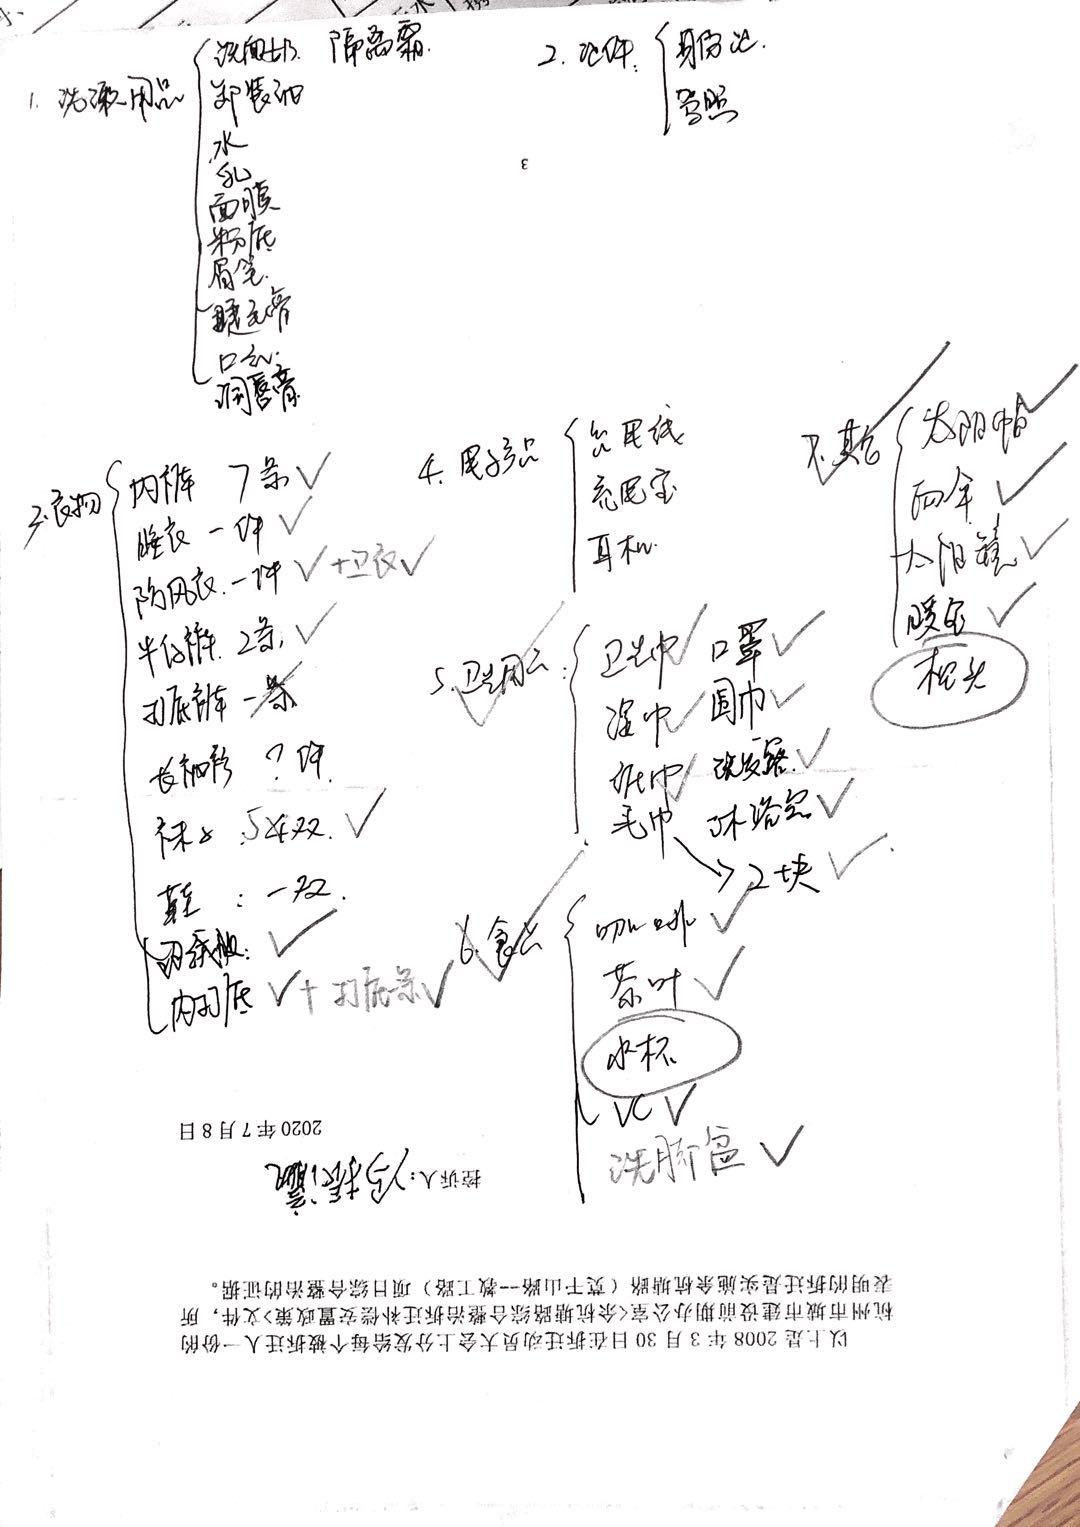 1. 洗漱用品
洗面奶 隔离霜
卸妆油
水
乳
面膜
粉底
眉笔
睫毛膏
口红
润唇膏
2. 证件:
身份证
驾照
3
3. 衣物
内裤 7条
睡衣 一件
防风衣 一件 +卫衣
牛仔裤 2条
打底裤 一条
长袖衫 ?件
袜子 5双
鞋 : 一双
羽绒服:
内打底 + 打底一条
4. 电子产品
充电线
充电宝
耳机
5. 卫生用品:
卫生巾 口罩
湿巾 围巾
纸巾 洗发露
毛巾 沐浴露
2块
6. 食品
咖啡
茶叶
水杯
VC
洗脚盆
7. 其它
太阳帽
雨伞
太阳镜
暖宝
枕头
以上是 2008 年 3 月 30 日在拆迁动员大会上分发给每个被拆迁人一份的
杭州市城市建设前期办公室<余杭塘路综合整治拆迁补偿安置政策>文件，所
表明的拆迁是实施余杭塘路（莫干山路--教工路）项目综合整治的证据。
控诉人：
2020 年 7 月 8 日